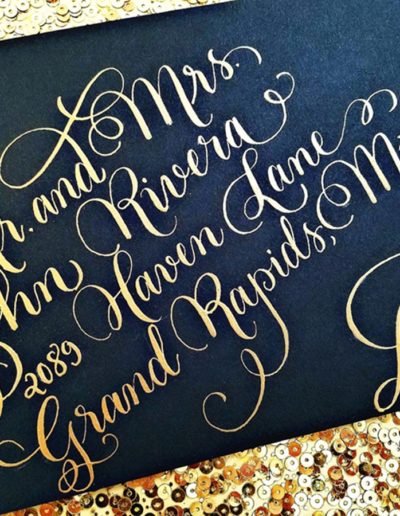 r. and Mrs.
hn Rivera
2089 Haven Lane
Grand Rapids, M